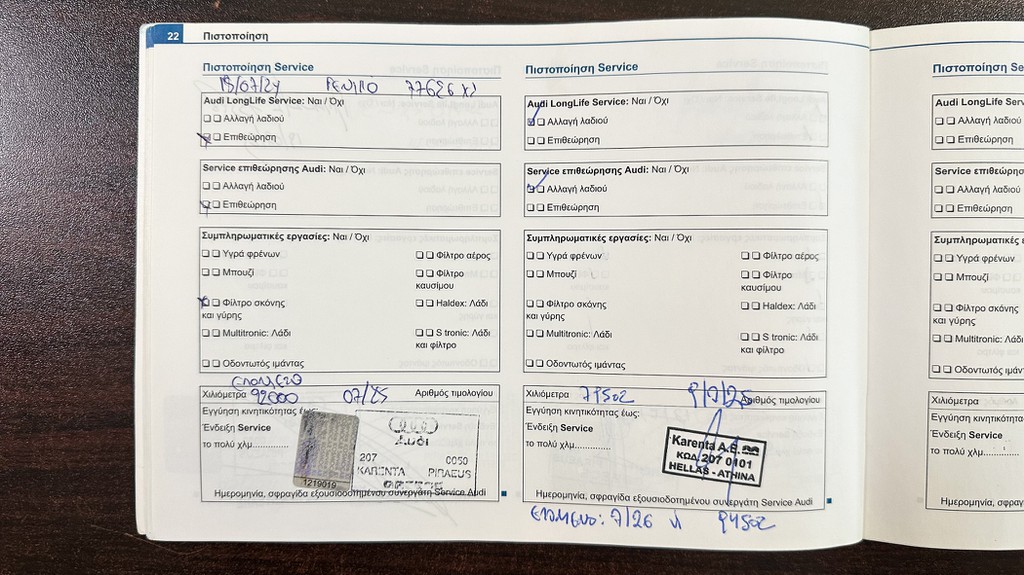 22 Πιστοποίηση
Πιστοποίηση Service
18/07/24 77626
Audi LongLife Service: Ναι / Όχι
Αλλαγή λαδιού
Επιθεώρηση
Service επιθεώρησης Audi: Ναι / Όχι
Αλλαγή λαδιού
Επιθεώρηση
Συμπληρωματικές εργασίες: Ναι / Όχι
Υγρά φρένων
Φίλτρο αέρος
Μπουζί
Φίλτρο
καυσίμου
Φίλτρο σκόνης
και γύρης
Haldex: Λάδι
Multitronic: Λάδι
S tronic: Λάδι
και φίλτρο
Οδοντωτός ιμάντας
Χιλιόμετρα 92000 07/25 Αριθμός τιμολογίου
Εγγύηση κινητικότητας έως:
Ένδειξη Service
το πολύ χλμ..............
1219019
Audi
207 0050
KARENTA PIRAEUS
GREECE
Ημερομηνία, σφραγίδα εξουσιοδοτημένου συνεργάτη Service Audi
Πιστοποίηση Service
Audi LongLife Service: Ναι / Όχι
Αλλαγή λαδιού
Επιθεώρηση
Service επιθεώρησης Audi: Ναι / Όχι
Αλλαγή λαδιού
Επιθεώρηση
Συμπληρωματικές εργασίες: Ναι / Όχι
Υγρά φρένων
Φίλτρο αέρος
Μπουζί
Φίλτρο
καυσίμου
Φίλτρο σκόνης
και γύρης
Haldex: Λάδι
Multitronic: Λάδι
S tronic: Λάδι
και φίλτρο
Οδοντωτός ιμάντας
Χιλιόμετρα 79502 9/7/25 Αριθμός τιμολογίου
Εγγύηση κινητικότητας έως:
Ένδειξη Service
το πολύ χλμ..............
Karenta A.E.
ΚΩΔ. 207 0101
HELLAS - ATHINA
Ημερομηνία, σφραγίδα εξουσιοδοτημένου συνεργάτη Service Audi
ΕΠΟΜΕΝΟ: 7/26 ή 94502
Πιστοποίηση Se
Audi LongLife Serv
Αλλαγή λαδιού
Επιθεώρηση
Service επιθεώρησ
Αλλαγή λαδιού
Επιθεώρηση
Συμπληρωματικές ε
Υγρά φρένων
Μπουζί
Φίλτρο σκόνης
και γύρης
Multitronic: Λάδι
Οδοντωτός ιμάντ
Χιλιόμετρα
Εγγύηση κινητικότητα
Ένδειξη Service
το πολύ χλμ..............
Ημερομηνία, σφραγ